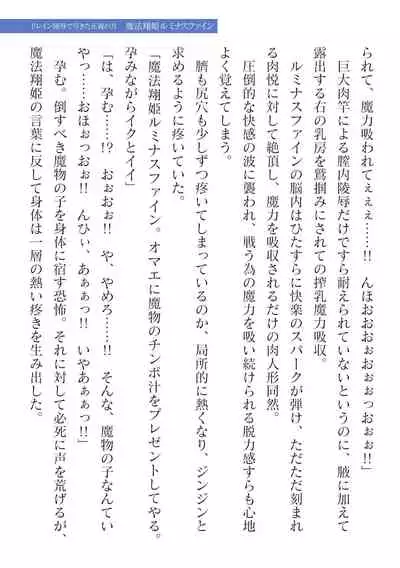 ドレイン陵辱で尽きた正義の力 魔法翔姫ルミナスファイン
られて、魔力吸われてぇぇぇ……!! んほおおおぉおぉぉっおぉぉ!!」
巨大肉竿による膣内陵辱だけですら耐えられていないというのに、腋に加えて
露出する右の乳房を鷲掴みにされての搾乳魔力吸収。
ルミナスファインの脳内はひたすらに快楽のスパークが弾け、ただただ刻まれ
る肉悦に対して絶頂し、魔力を吸収されるだけの肉人形同然。
圧倒的な快感の波に襲われ、戦う為の魔力を吸い続けられる脱力感すらも心地
よく覚えてしまう。
臍も尻穴も少しずつ疼いてしまっているのか、局所的に熱くなり、ジンジンと
求めるように疼いていた。
「魔法翔姫ルミナスファイン。オマエに魔物のチンポ汁をプレゼントしてやる。
孕みながらイクとイイ」
「は、孕む……!? おぉおぉ!! や、やめろ……!! そんな、魔物の子なんてい
やっ……おほぉっおぉ!! んひぃ、あぁぁっ!! いやあぁぁっ!!」
孕む。倒すべき魔物の子を身体に宿す恐怖。それに対して必死に声を荒げるが、
魔法翔姫の言葉に反して身体は一層の熱い疼きを生み出した。